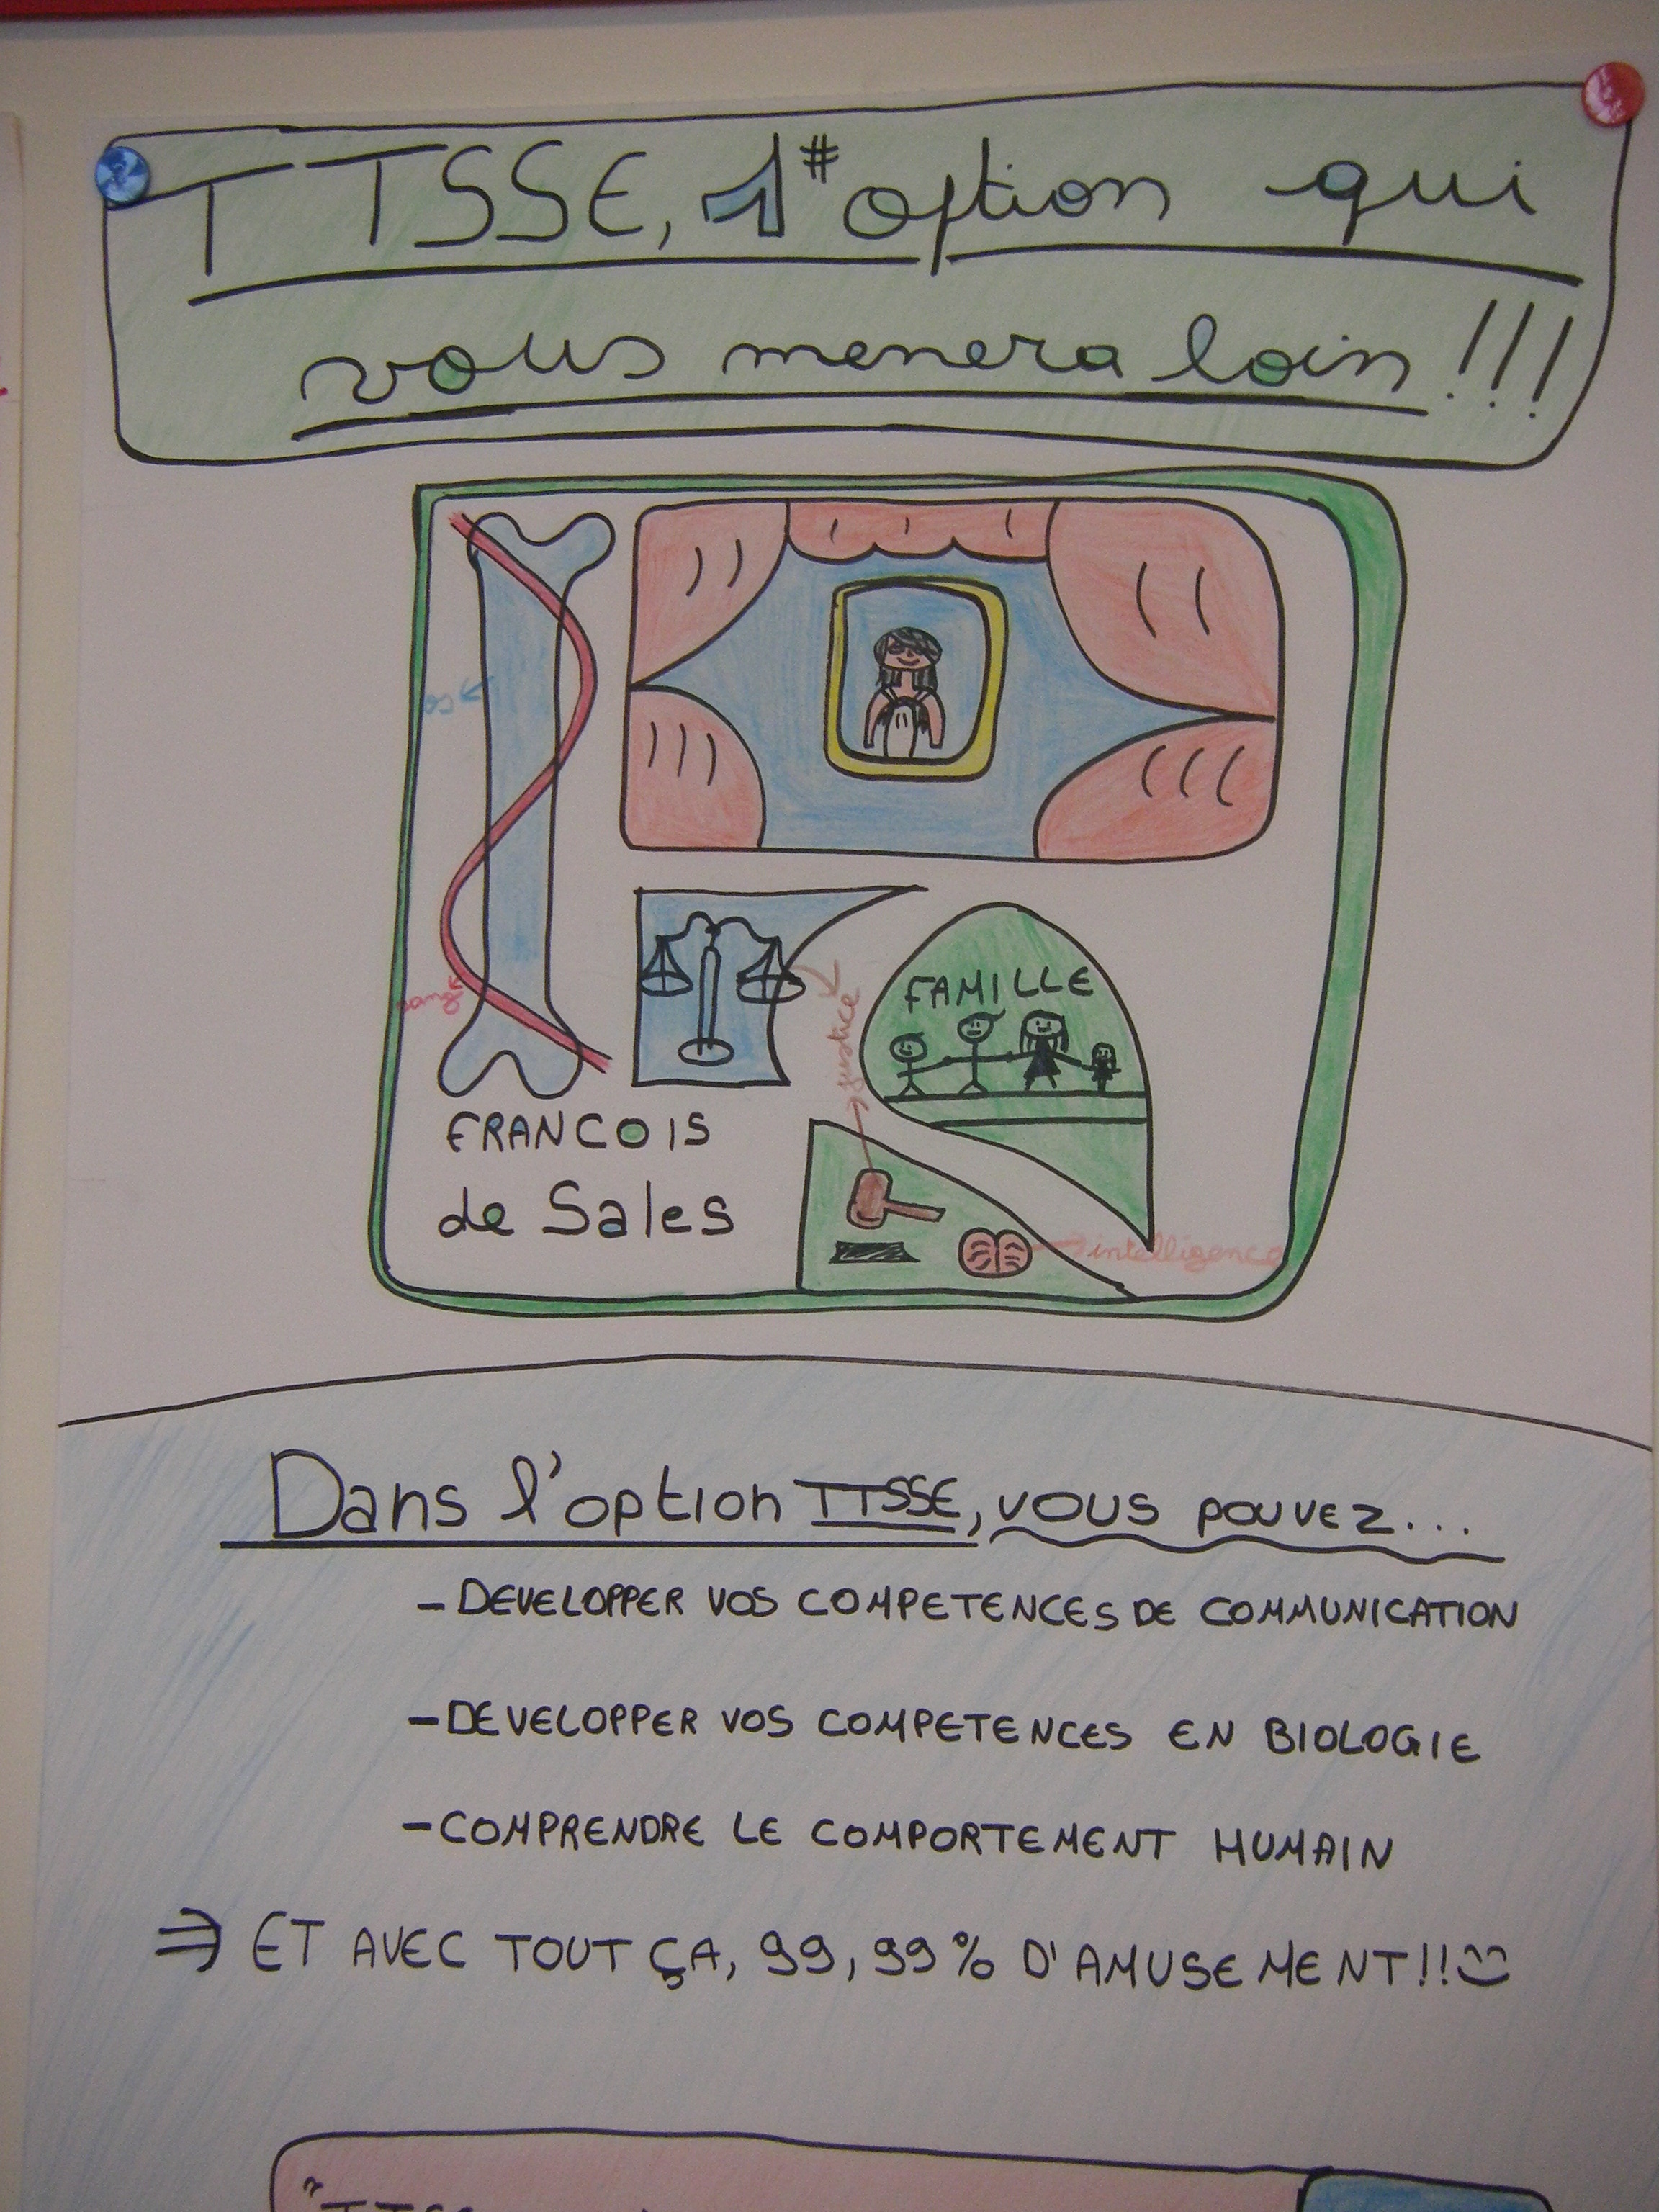 TTSSE, 1# option qui
vous menera loin !!!
os
sang
justice
FAMILLE
FRANCOIS
de Sales
intelligence
Dans l'option TTSSE, vous pouvez...
- DEVELOPPER VOS COMPETENCES DE COMMUNICATION
- DEVELOPPER VOS COMPETENCES EN BIOLOGIE
- COMPRENDRE LE COMPORTEMENT HUMAIN
⇒ ET AVEC TOUT ÇA, 99,99% D'AMUSEMENT!!